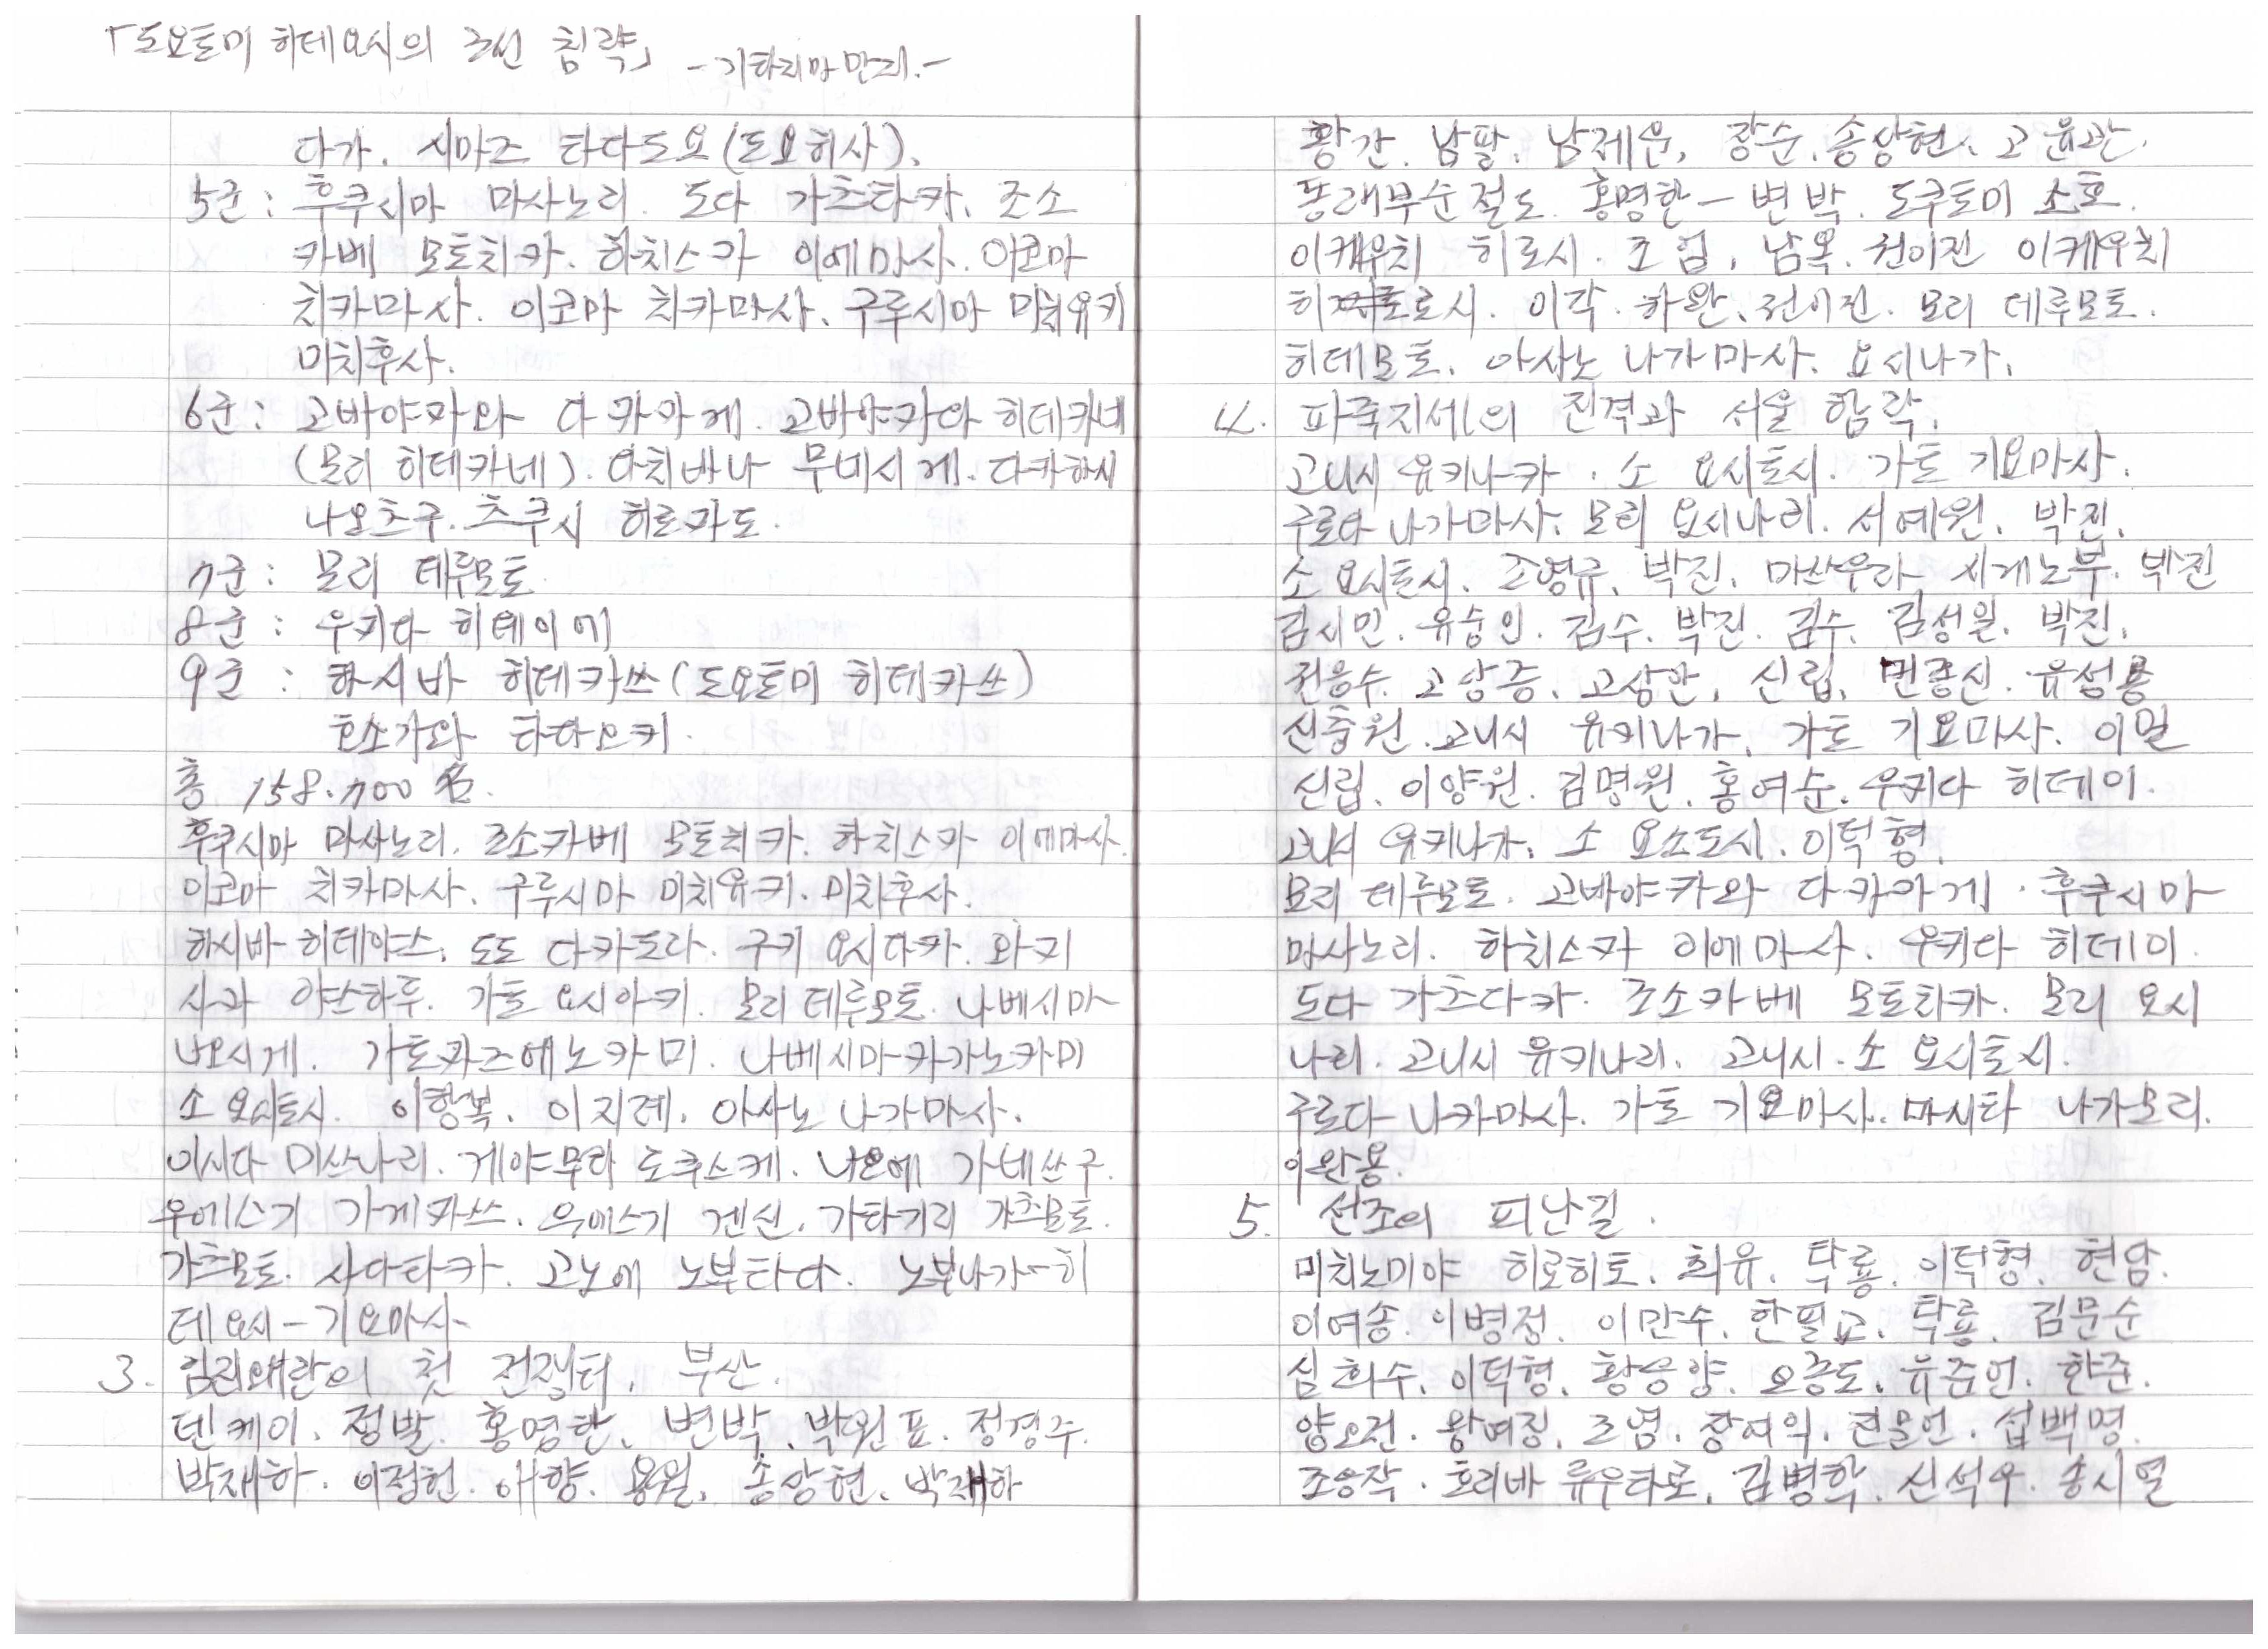 「도요토미 히데요시의 조선 침략」 -기타지마 만지.-
다가. 시마즈 타다도요(토요히사).
5군: 후쿠시마 마사노리. 도다 가츠타카. 조소
카베 모토치카. 하치스카 이에마사. 이코마
치카마사. 이코마 치카마사. 구루시마 미치유키
미치후사.
6군: 고바야카와 다카카게. 고바야카와 히데카네
(모리 히데카네). 다치바나 무네시게. 다카하시
나오츠구. 츠쿠시 히로카도.
7군: 모리 테루모토
8군: 우키다 히데이에
9군: 하시바 히데카쓰(도요토미 히데카쓰)
호소가와 타다오키.
총 158.700 名.
후쿠시마 마사노리. 조소카베 모토치카. 하치스카 이에마사.
이코마 치카마사. 구루시마 미치유키. 미치후사.
하시바 히데야스. 도도 다카도라. 구키 요시다카. 와키
사카 야스하루. 가토 요시아키. 모리 테루모토. 나베시마
나오시게. 가토카즈에노카미. 나베시마카가노카미
소 요시토시. 이항복. 이지례. 아사노 나가마사.
이시다 미쓰나리. 게야무라 도쿠스케. 나오에 가네쓰구.
우에스기 가게카쓰. 우에스기 겐신. 가타기리 가츠모토.
가츠모토. 사다타카. 고노에 노부타다. 노부나가-히
데요시-기요마사-
3. 임진왜란의 첫 전쟁터, 부산.
텐케이. 정발. 홍명한. 변박. 박원표. 정경주.
박재하. 이정헌. 애향. 용월. 송상현. 박재하
황간. 남팔. 남제운. 장순. 송상현. 고윤관.
동래부순절도. 홍명한-변박. 도쿠토미 소호.
이케우치 히로시. 조엄. 남옥. 권이진 이케우치
히로시. 이각. 하완. 전이진. 모리 테루모토.
히데모토. 아사노 나가마사. 요시나가.
4. 파죽지세의 진격과 서울 함락.
고니시 유키나가. 소 요시토시. 가토 기요마사.
구로다 나가마사. 모리 요시나리. 서예원. 박진.
소 요시토시. 조영규. 박진. 마쓰우라 시게노부. 박진
김시민. 유숭인. 김수. 박진. 김수. 김성일. 박진.
전응수. 고앙증. 고상안. 신립. 민종신. 유성룡
신충원. 고니시 유키나가. 가토 기요마사. 이일
신립. 이양원. 김명원. 홍여순. 우키다 히데이.
고니시 유키나가. 소 요소도시. 이덕형.
모리 테루모토. 고바야카와 다카카게. 후쿠시마
마사노리. 하치스카 이에마사. 우키다 히데이.
도다 가츠다카. 조소카베 모토치카. 모리 요시
나리. 고니시 유키나리. 고니시. 소 요시토시.
구로다 나카마사. 가토 기요마사. 마시타 나가모리.
이완용.
5. 선조의 피난길.
미치노미야 히로히토. 최유. 탁룡. 이덕형. 현암.
이여송. 이병정. 이만수. 한필교. 탁룡. 김문순
심희수. 이덕형. 황응양. 오종도. 유준언. 한준.
양오전. 왕여정. 조념. 장여익. 전물언. 섭백명.
조승작. 호리바 류우타로. 김병학. 신석우. 송시열